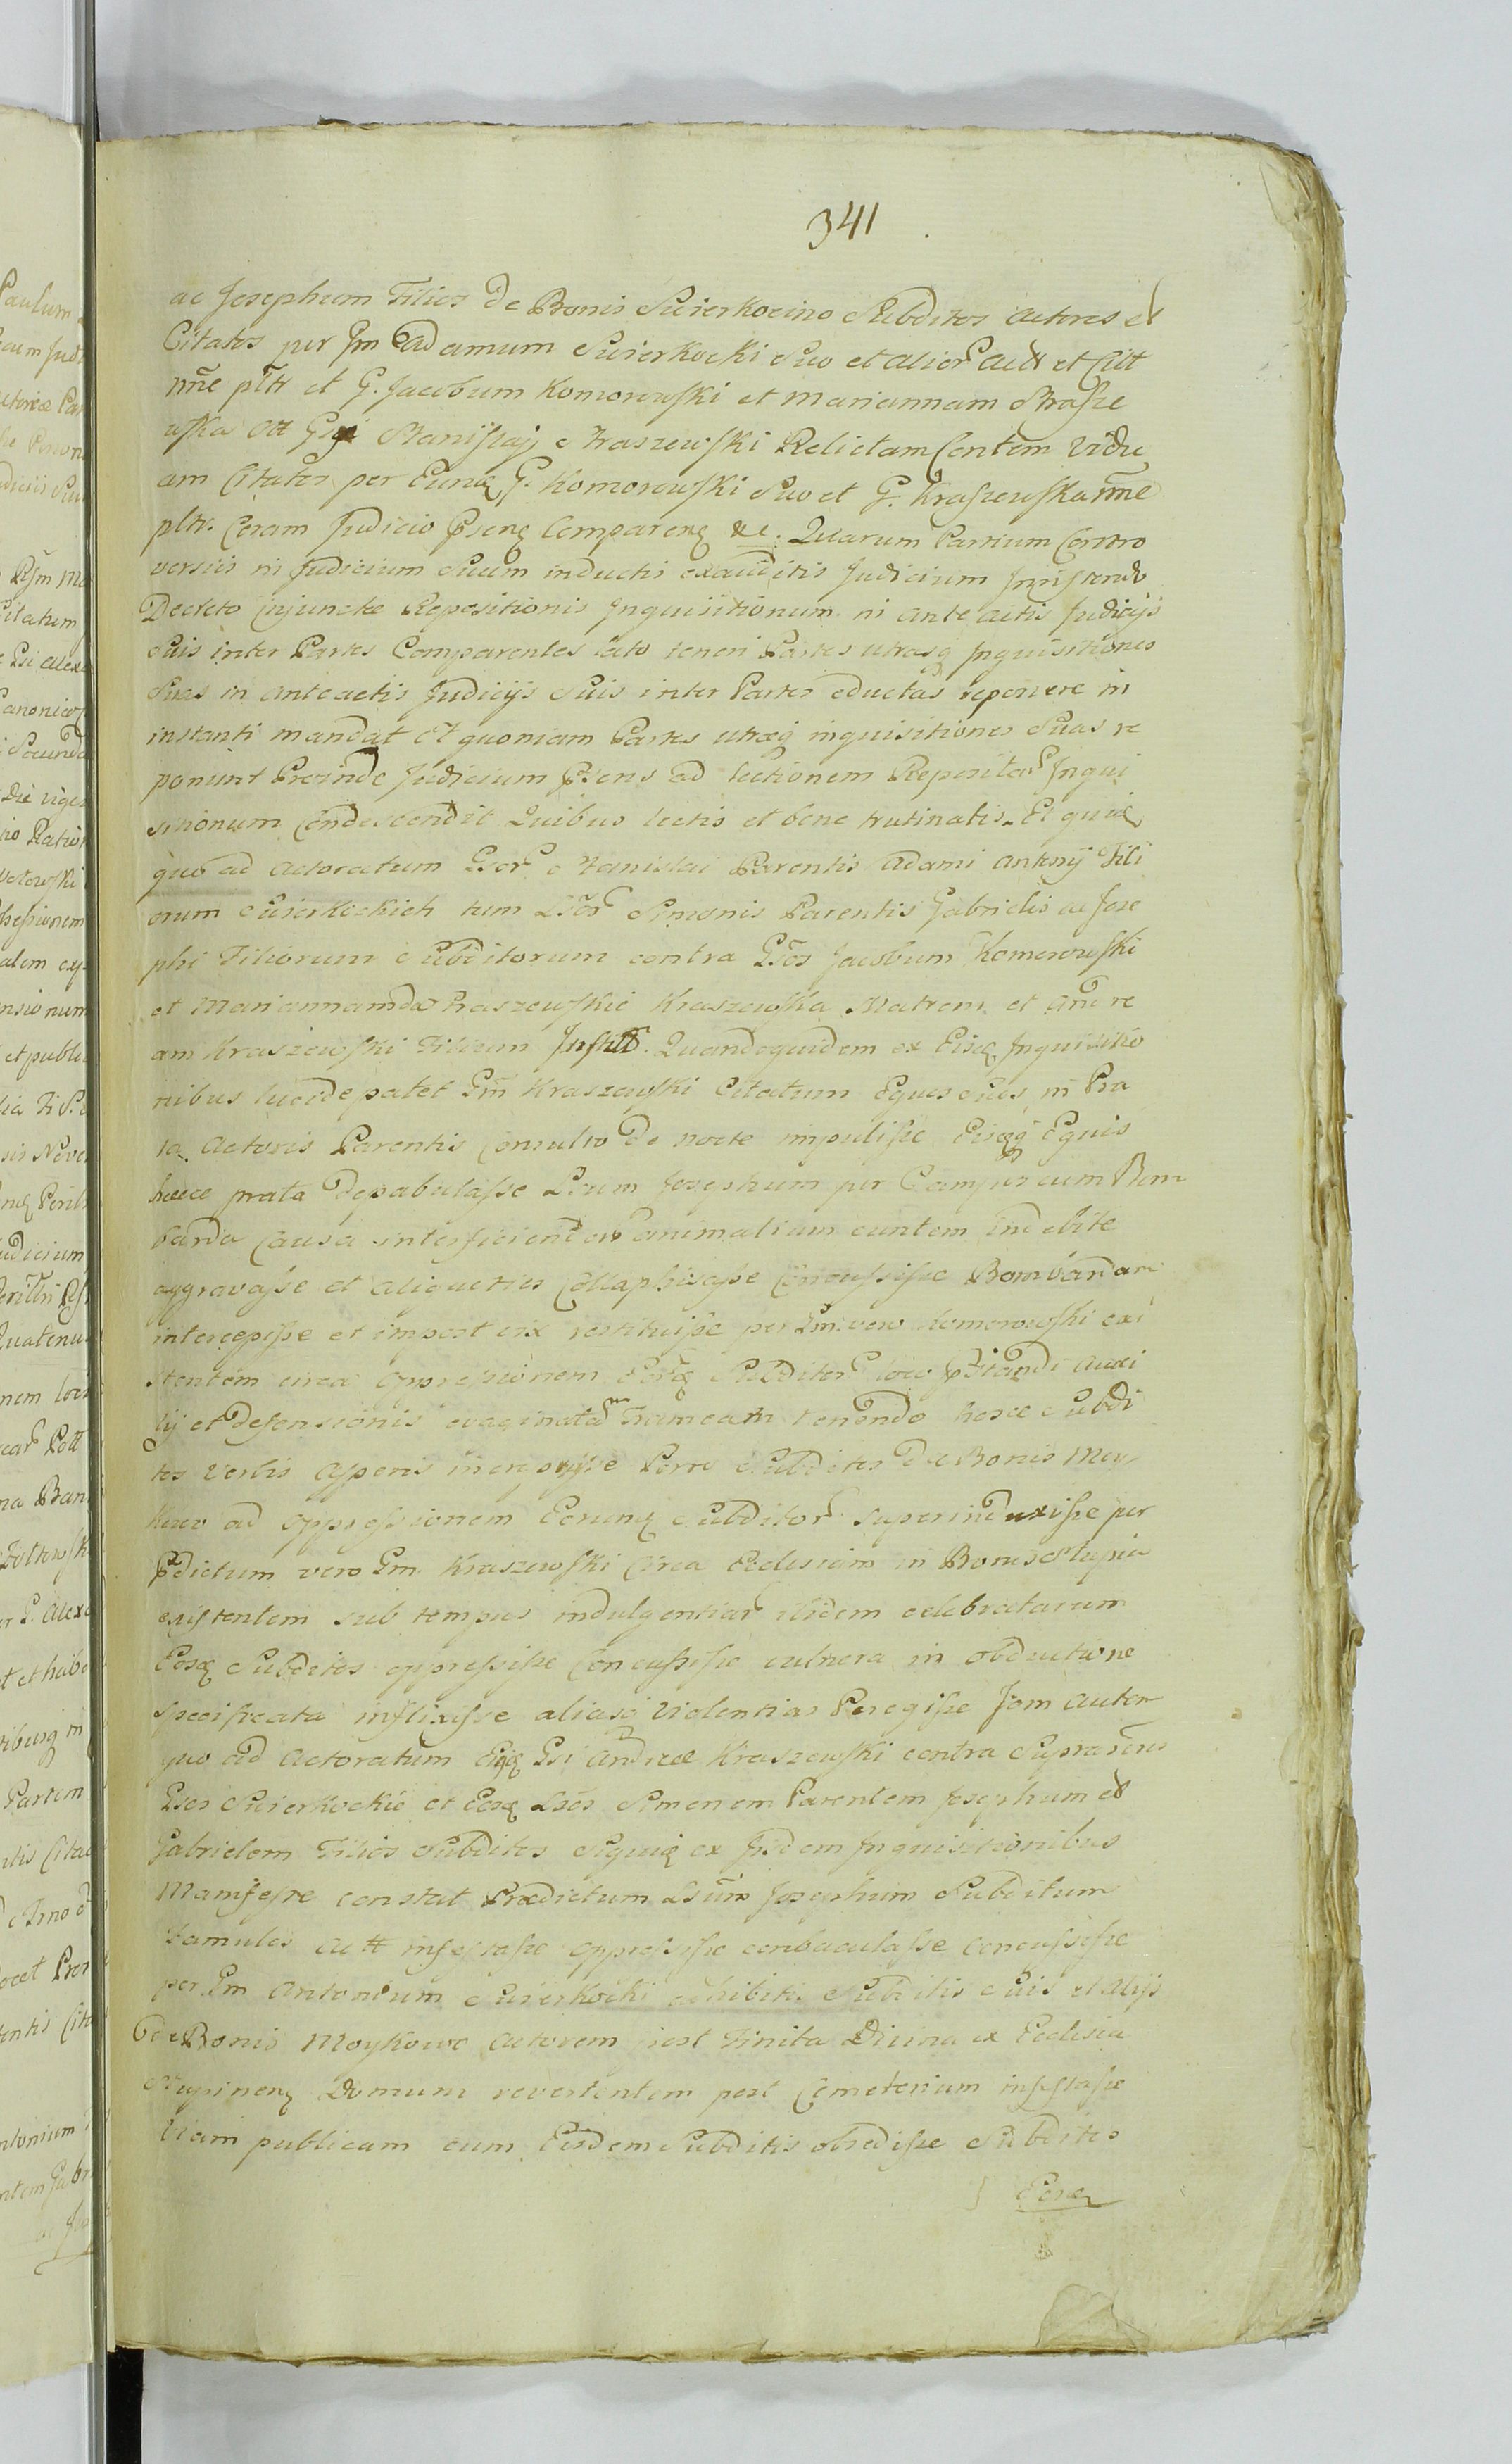 341
ac Josephum Filios de Bonis Suierkocino Subditos actores et
Citatos per Gm Adamum Suierkocki Suo et alior Actt et Citt
nne pltr et G. Jacobum Komorowski et Mariannam Krasze
wska Ott Gsi Stanislaj Kraszewski Relictam Contem Vidu
am Citatos per Eunq G. Komorowski Suo et G. Kraszewska nne
pltr. Coram Judicio Psenq Comparenq &c. Quarum Partium Contro
versiis in Judicium suum inductis exauditis Judicium Inhærendo
Decreto Conjunctæ Repositionis Inquisitionum in ante actis Judicijs
suis inter Partes Comparentes lato teneri Partes utrasq Inquisitiones
Suas in anteactis Judicijs Suis inter Partes eductas reponere in
instanti mandat Et quoniam Partes utræq inquisitiones Suas re
ponunt Proinde Judicium Psens ad lectionem Repositar Inqui
sitionum Condescendit Quibus lectis et bene trutinatis. Et quia
quo ad Actoratum Gsor Stanislai Parentis Adami Antonij Fili
orum Suierkockich tum Lsor Simonis Parentis Gabrielis ac Jose
phi Filiorum Subditorum contra Gsos Jacobum Komorowski
et Mariannam de Kraszewskie Kraszewska Matrem et Andre
am Kraszewski Filium Instt. Quandoquidem ex Eisq Inquisitio
nibus lucide patet Gm Kraszewski Citatum Equos suos in Pra
ta Actoris Parentis Consulto de nocte impulisse Eisqq Equis
hæce prata depabulasse Lsum Josephum per Campus cum Bom
barda Causa interficiendor animalium euntem indebite
aggravasse et aliquoties Collaphisasse Concussisse Bombardam
intercepisse et impost vix restituisse per Gm vero Komorowski exi
stentem circa oppressionem Eorq Subditor loco præstandi Auxi
lij et defensionis evaginatam Frameam tenendo hosce Subdi
tos Verbis Asperis increpasse Porro Subditos de Bonis Moy
kowo ad oppressionem Eorunq Subditor Superinduxisse per
Pdictum vero Gm Kraszewski Circa Ecclesiam in Bonis Slupia
existentem sub tempus indulgentiar ibidem celebratarum
Eosq Subditos oppressisse Concussisse vulnera in obductione
specificata inflixisse aliasq Violentias Peregisse Jam Autem
quo ad Actoratum Ejq Gsi Andreæ Kraszewski contra Supratens
Gsos Suierkockie et Eosq Lsos Simonem Parentem Josephum et
Gabrielem Filios Subditos Siquiq ex Jisdem Inquisitionibus
Manifeste constat Prædictum Lsum Josephum Subditum
Famulos Actt infestasse oppressisse conbaculasse concussisse
per Gm Antonium Suierkocki adhibitis Subditis Suis et alijs
de Bonis Moykowo Actorem post Finita Divina ex Ecclesia
Slupinenq Domum revertentem post Cemeterium infestasse
Viam publicam cum Eisdem Subditis obsedisse Subditos
Eosq